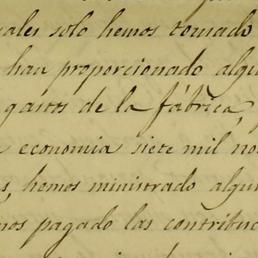 ales solo hemos tomado
han proporcionado algu
gastos de la fábrica,
economia siete mil no
s, hemos ministrado algu
mos pagado las contribuc